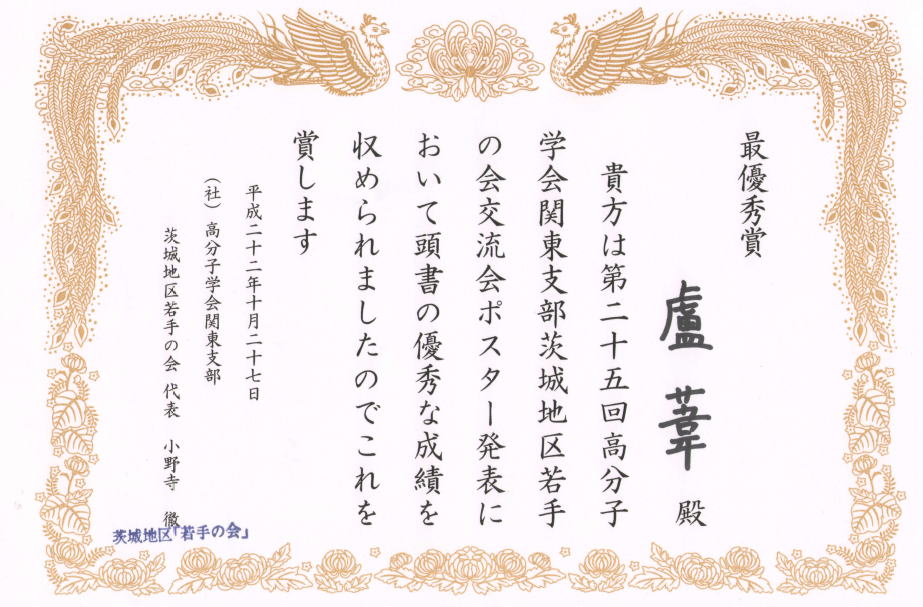 最優秀賞
盧葦 殿
貴方は第二十五回高分子
学会関東支部茨城地区若手
の会交流会ポスター発表に
おいて頭書の優秀な成績を
収められましたのでこれを
賞します
平成二十二年十月二十七日
(社)高分子学会関東支部
茨城地区若手の会 代表 小野寺 徹
茨城地区「若手の会」